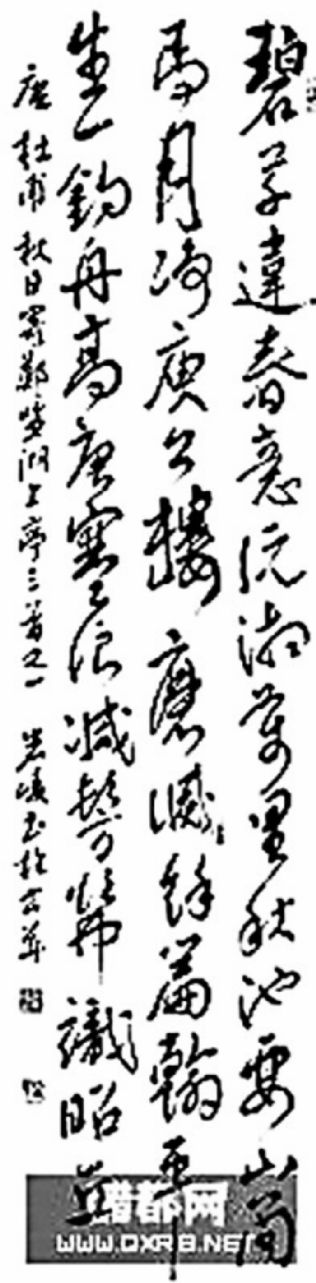 碧草違春意沅湘萬里秋池要山簡
馬月淨庾公樓磨滅餘篇翰平
生一釣舟高唐寒浪減髣髴識昭丘
唐杜甫秋日寄鄭監湖上亭三首之一 書於
醋都网
www.QXRB.NET